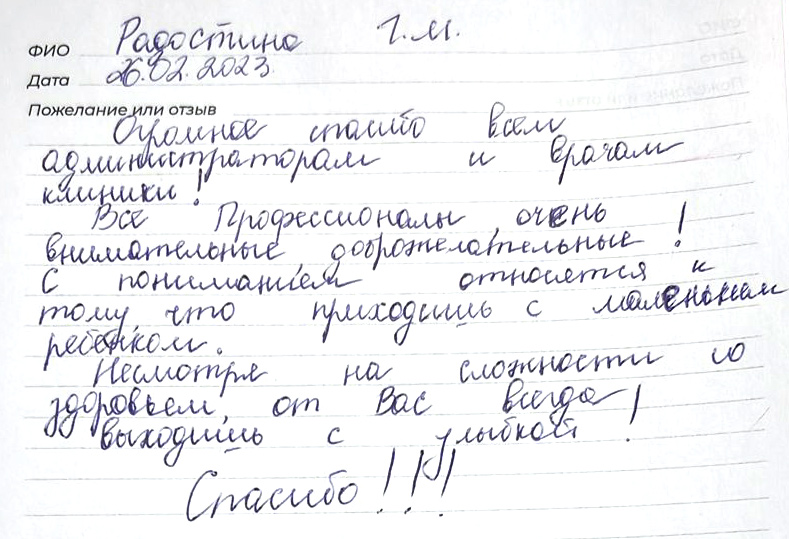 ФИО Радостина Г.М.
Дата 26.02.2023
Пожелание или отзыв
Огромное спасибо всем
администраторам и врачам
клиники!
Все Профессионалы, очень
внимательные, доброжелательные!
С пониманием относятся к
тому, что приходишь с маленьким
ребёнком.
Несмотря на сложности со
здоровьем, от Вас всегда
выходишь с улыбкой!
Спасибо!!!